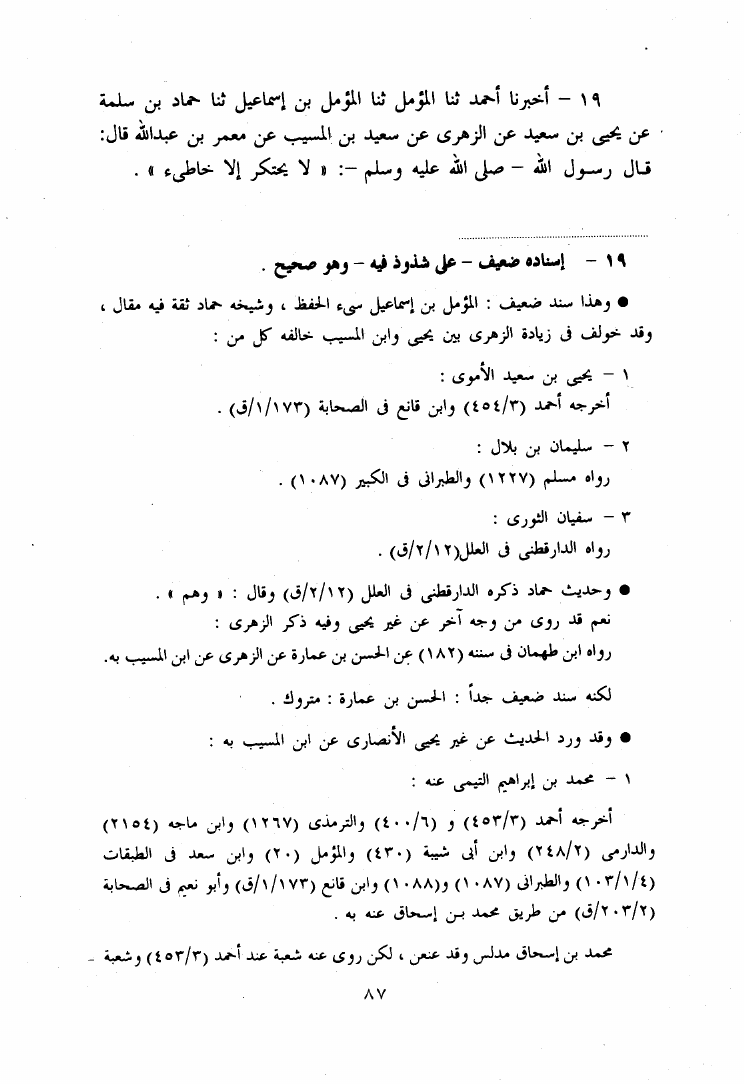 ١٩ – أخبرنا أحمد ثنا المؤمل ثنا المؤمل بن إسماعيل ثنا حماد بن سلمة
عن يحيى بن سعيد عن الزهرى عن سعيد بن المسيب عن معمر بن عبدالله قال:
قال رسول الله – صلى الله عليه وسلم –: « لا يحتكر إلا خاطىء » .
١٩ – إسناده ضعيف – على شذوذ فيه – وهو صحيح .
● وهذا سند ضعيف : المؤمل بن إسماعيل سىء الحفظ ، وشيخه حماد ثقة فيه مقال ،
وقد خولف فى زيادة الزهرى بين يحيى وابن المسيب خالفه كل من :
١ – يحيى بن سعيد الأموى :
أخرجه أحمد (٤٥٤/٣) وابن قانع فى الصحابة (١/١٧٣/ق) .
٢ – سليمان بن بلال :
رواه مسلم (١٢٢٧) والطبرانى فى الكبير (١٠٨٧) .
٣ – سفيان الثورى :
رواه الدارقطنى فى العلل(٢/١٢/ق) .
● وحديث حماد ذكره الدارقطنى فى العلل (٢/١٢/ق) وقال : « وهم » .
نعم قد روى من وجه آخر عن غير يحيى وفيه ذكر الزهرى :
رواه ابن طهمان فى سننه (١٨٢) عن الحسن بن عمارة عن الزهرى عن ابن المسيب به.
لكنه سند ضعيف جداً : الحسن بن عمارة : متروك .
● وقد ورد الحديث عن غير يحيى الأنصارى عن ابن المسيب به :
١ – محمد بن إبراهيم التيمى عنه :
أخرجه أحمد (٤٥٣/٣) و (٤٠٠/٦) والترمذى (١٢٦٧) وابن ماجه (٢١٥٤)
والدارمى (٢٤٨/٢) وابن أبى شيبة (٤٣٠) والمؤمل (٢٠) وابن سعد فى الطبقات
(١٠٣/١/٤) والطبرانى (١٠٨٧) و(١٠٨٨) وابن قانع (١/١٧٣/ق) وأبو نعيم فى الصحابة
(٢٠٣/٢/ق) من طريق محمد بن إسحاق عنه به .
محمد بن إسحاق مدلس وقد عنعن ، لكن روى عنه شعبة عند أحمد (٤٥٣/٣) وشعبة –
٨٧